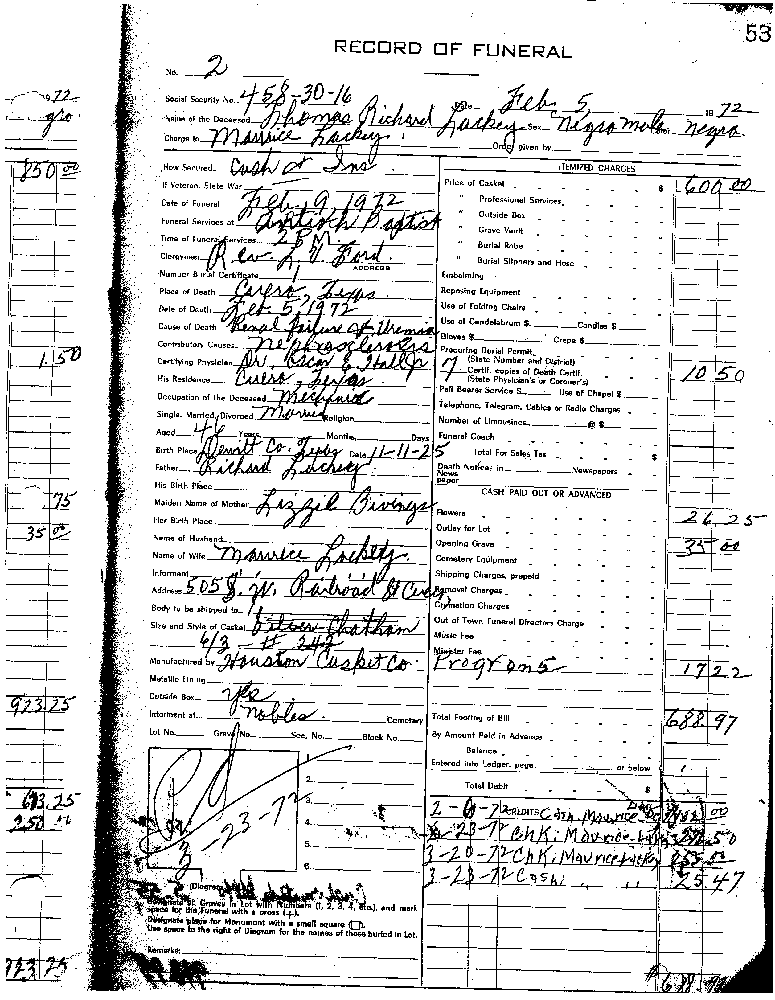 53
RECORD OF FUNERAL
No. 2
Social Security No. 458-30-16 Date Feb. 5 1972
Name of the Deceased Thomas Richard Lackey Sex Negro Male negro
Charge to Maurice Lackey. Order given by
How Secured Cash or Ins
If Veteran, State War
Date of Funeral Feb. 9, 1972
Funeral Services at Antioch Baptist
Time of Funeral Services 2 PM
Clergyman Rev. L. V. Ford
ADDRESS
Number Burial Certificate
Place of Death Cuero, Texas
Date of Death Feb. 5, 1972
Cause of Death Renal failure of Uremia
Contributory Causes nephrosclerosis
Certifying Physician Dr. Oscar E. Hall Jr
His Residence Cuero, Texas
Occupation of the Deceased Mechanic
Single, Married, Divorced Married Religion
Aged 46 Years Months Days
Birth Place Dewitt Co. Texas Date 11-11-25
Father Richard Lackey
His Birth Place
Maiden Name of Mother Lizzie Bivings
Her Birth Place
Name of Husband
Name of Wife Maurice Lackey
Informant
Address 505 Railroad St Cuero
Body to be shipped to
Size and Style of Casket Silver Chatham
6/3 - # 242
Manufactured by Houston Casket Co.
Metallic Lining
Outside Box yes
Interment at nobles Cemetery
Lot No. Grave No. Sec. No. Block No.
1.
2.
3.
4.
5.
6.
Pd
3-23-72
(Diagram
Designate Graves in Lot with Numbers (1, 2, 3, 4, etc.), and mark
space for this Funeral with a cross (+).
Designate place for Monument with a small square
Use space to the right of Diagram for the names of those buried in Lot.
Remarks:
ITEMIZED CHARGES
Price of Casket $ 600 00
" Professional Services
" Outside Box
" Grave Vault
" Burial Robe
" Burial Slippers and Hose
Embalming
Reposing Equipment
Use of Folding Chairs
Use of Candelabrum $ Candles $
Gloves $ Crepe $
Procuring Burial Permit
(State Number and District)
7 Certif. copies of Death Certif. 10 50
(State Physician's or Coroner's)
Pall Bearer Service $ Use of Chapel $
Telephone, Telegram, Cables or Radio Charges
Number of Limousines @ $
Funeral Coach
Total For Sales Tax $
Death Notices in Newspapers
News
paper
CASH PAID OUT OR ADVANCED
Flowers 26 25
Outlay for Lot
Opening Grave 35 00
Cemetery Equipment
Shipping Charges, prepaid
Removal Charges
Cremation Charges
Out of Town Funeral Directors Charge
Music Fee
Minister Fee
Programs 17 22
Total Footing of Bill 688.97
By Amount Paid in Advance
Balance
Entered into Ledger, page or below
Total Debit $
2-6-72 CREDITS Cash Maurice
-23-72 Chk: Maurice
3-20-72 Chk: Maurice Lackey
3-23-72 Cash " " 25.47
72
gro
850 00
1.50
.75
35 00
923.25
673.25
250 00
923 25